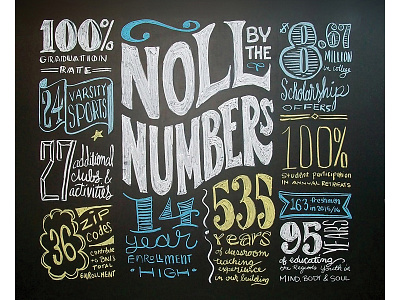 100%
GRADUATION
RATE
24
VARSITY
SPORTS
27
additional
clubs &
activities
36
ZIP
CODES
contribute
to BNL's
TOTAL
ENROLLMENT
NOLL
BY
THE
NUMBERS
14
year
ENROLLMENT
HIGH
535
YEARS
of classroom
teaching
experience
in our building
$8.67
MILLION
in college
Scholarship
OFFERS
100%
Student participation
IN ANNUAL RETREATS
163 freshmen
in 2015/16
95
YEARS
of educating
the Regions Youth in
MIND, BODY & SOUL